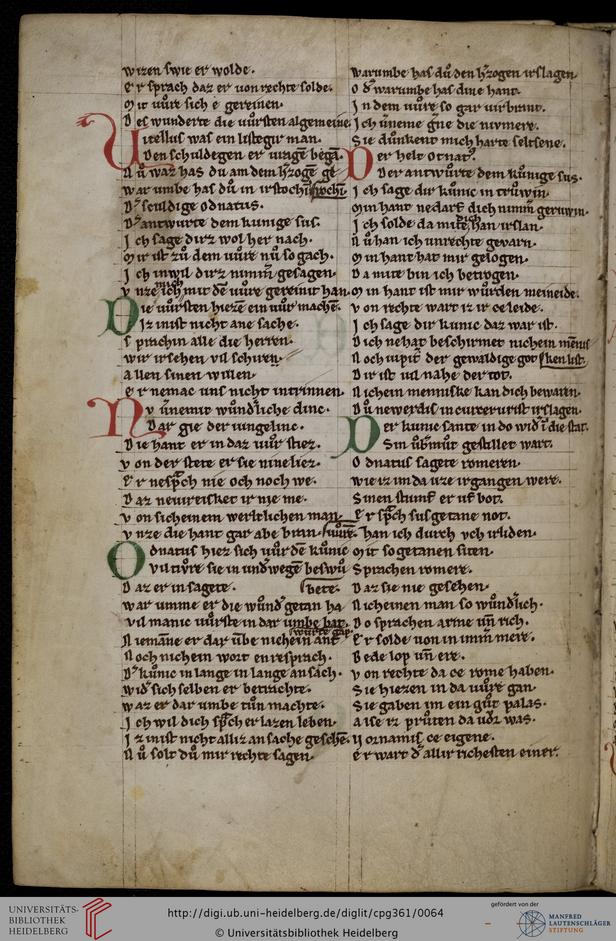 wizen swie er wolde.
er sprach daz er uon rechte solde.
mit uůre sich e gereinen.
Des wunderte die uůrsten algemeine.
Uitellus was ein listeger man.
Den schuldegen er uragē begā.
Nů waz has du an dem h'zogē ge
war umbe has dů in irstochī
rochī
D' sculdige odnatus.
D' antwurte dem kunige sus.
Ich sage dirz wol her nach.
mir ist zů dem uůre nů so gach.
Ich inwil dirz nimm' gesagen.
vnze ich mich mit dē uůre gereinit han.
Die uůrsten hieze ein uůr machē.
Iz inist nicht ane sache.
sprachin alle die herren.
wir irsehen vil schiere.
allen sinen willen.
er nemac uns nicht intrinnen.
Nv u'nemit wund'liche dinc.
Dar gie der iungelinc.
Die hant er in daz uůr stiez.
von der stete er sie nine liez.
Er nesp'ch nie och noch we.
Daz neiureisket ir nie me.
von sicheinem werltlichen man.
vnze die hant gar abe bran.
uůre.
Odnatus hiez sich uůr dē kunic
vutivre sie in und'wegē beswů
Daz er in sagete.
bete.
war umme er die wund' getan ha
vil manic uůrste in dar umbe bat.
Niemāne er dar übe nichein ant
wurte gap.
Noch nichein wort en resprach.
D' kunic in lange in lange ansach.
wid' sich selben er betrachte.
waz er dar umbe tůn machte.
Ich wil dich sp'ch er lazen leben.
Iz inist nicht alliz an sache geschē.
Nů solt dů mir rechte sagen.
warumbe has dů den h'zogen irslagen
O d' warumbe has dine hant.
In dem uůre so gar uirbrant.
Ich u'neme g'ne die niumere.
Sie dunkent mich harte seltsene.
Der helt Otnat'.
Der antwurte dem kunige sus.
Ich sage dir kunic in trůwin.
min hant nedarf dich nimm' geruwin.
Ich solde da mite dich han irslan.
Nů han ich unrechte geuarn.
min hant hat mir gelogen.
Da mite bin ich betrogen.
min hant ist mir wůrden meineide.
von rechte wart iz ir ce leide.
Ich sage dir kunic daz war ist.
Dich nehat beschirmet nichein menis
Noch iupit' der gewaldige got
ken list.
Dir ist vil nahe der tot.
Nichein menniske kan dich bewaren.
Dů newerdis in curcer urist irslagen.
Der kunic sante in do wid' ī die stat.
Sin ub'mut gestillet wart.
Odnatus sagete romeren.
wie iz im da uze irgangen were.
Sinen stumf er uf bot.
Er sp'ch susgetane not.
han ich durch vch irliden.
mit sogetanen siten.
Sprachen romere.
Daz sie nie gesehen.
Nicheinen man so wund'lich.
Do sprachen arme uñ rich.
Er solde uon in imm' mere.
Bede lop uñ ere.
von rechte da ce rome haben.
Sie hiezen in da uůre gan.
Sie gaben im ein gůt palas.
a ise iz průten da uor was.
vornamis ce eigene.
er wart d' allir richesten einer.
UNIVERSITÄTS-
BIBLIOTHEK
HEIDELBERG
http://digi.ub.uni-heidelberg.de/diglit/cpg361/0064
© Universitätsbibliothek Heidelberg
gefördert von der
MANFRED
LAUTENSCHLÄGER
STIFTUNG